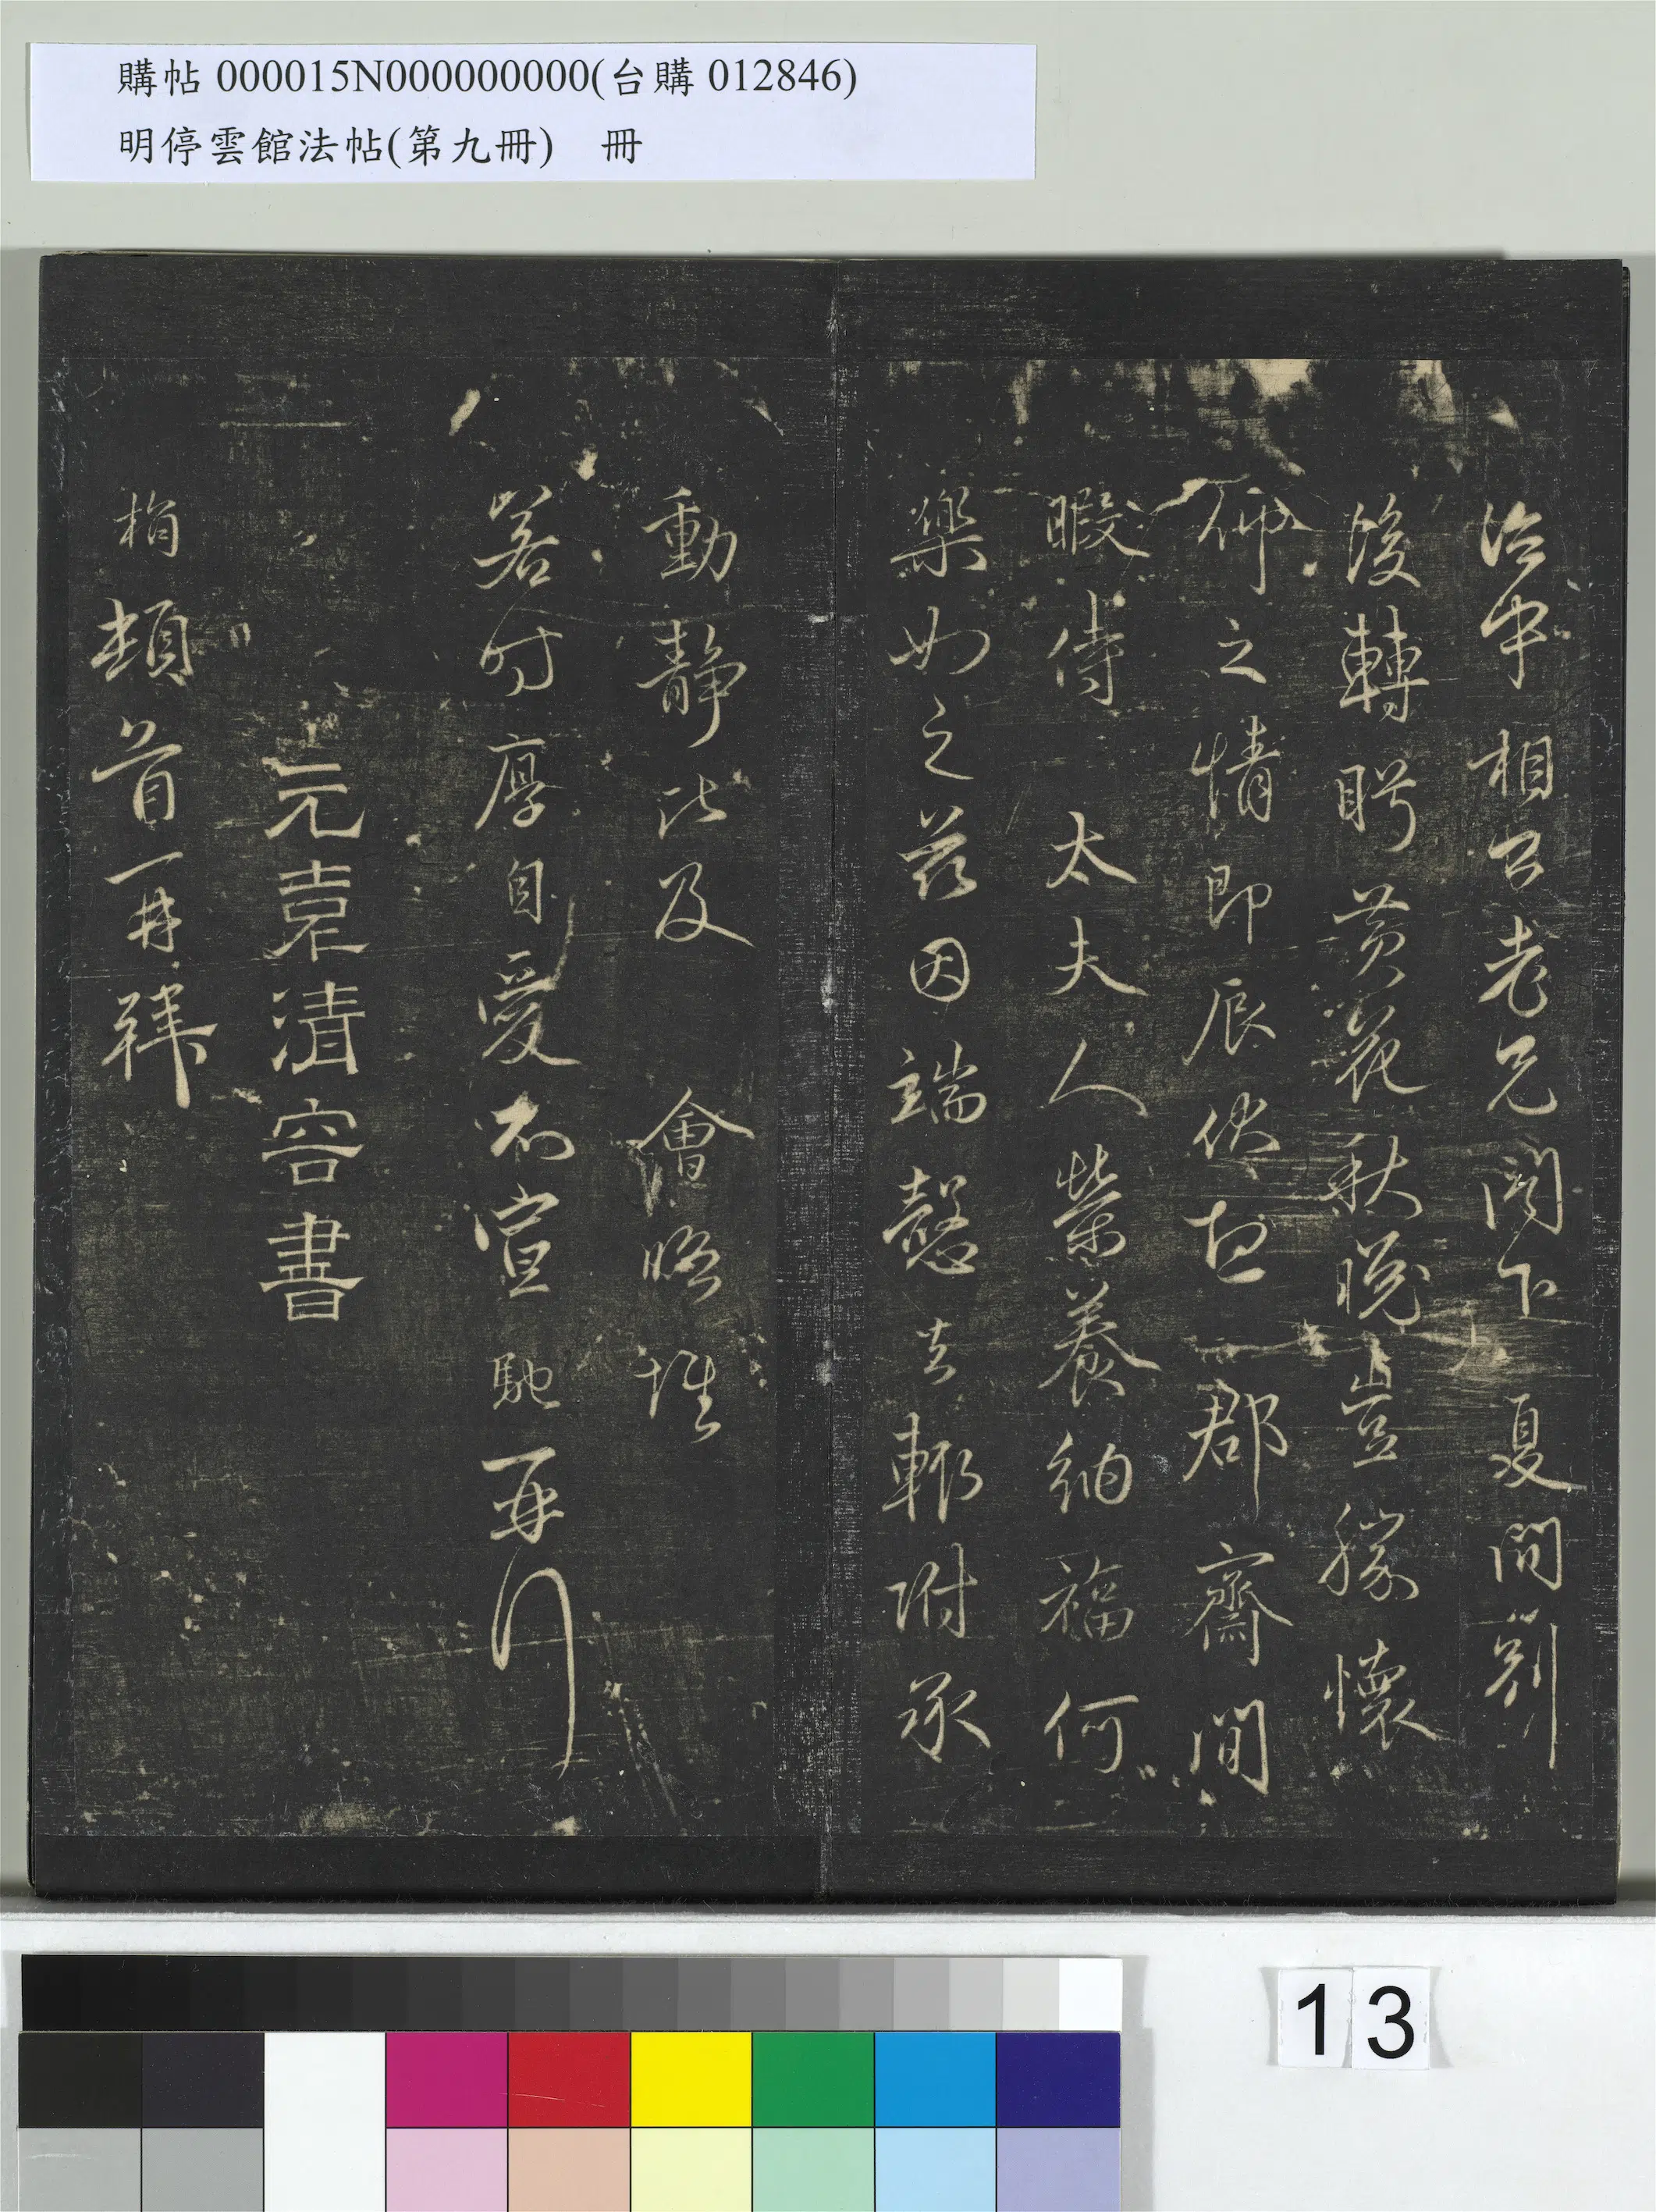 購帖000015N000000000(台購012846)
明停雲館法帖(第九冊) 冊
治中相公老兄閤下夏間別
後轉眄黃花秋晚豈勝懷
仰之情即辰伏想郡齋閒
暇侍 太夫人榮養納福何
樂如之茲因端慤去輒附承
動靜比及 會晤惟
若時厚自愛不宣 馳 再行
元袁清容書
桷頓首再拜
13